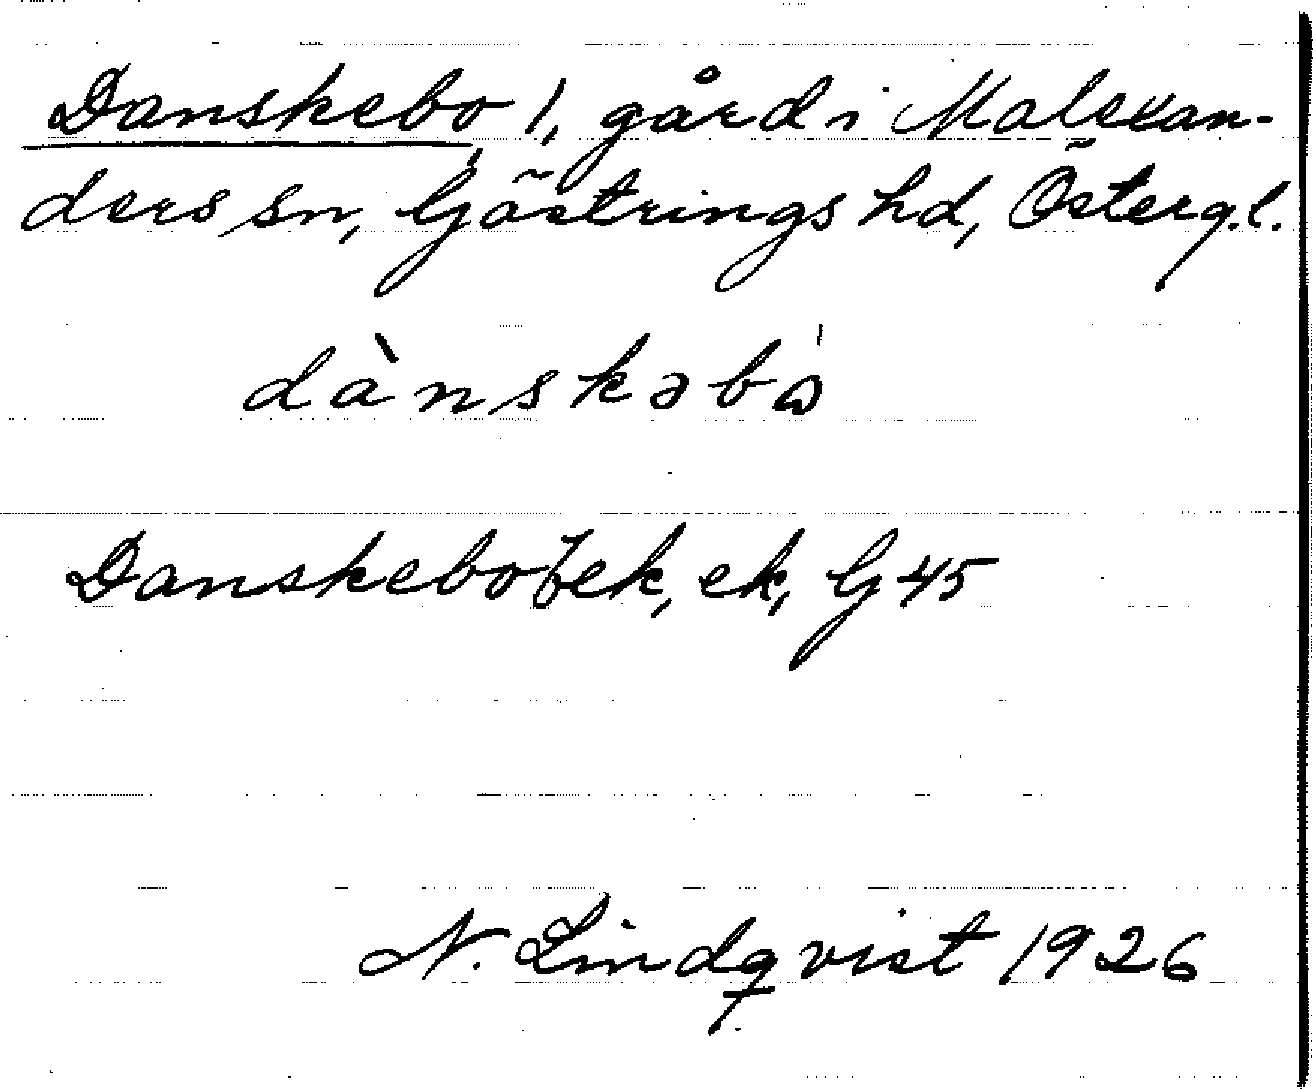 Danskebo 1, gård i Malexan-
ders sn, Göstrings hd, Östergl.
dànskəbɷ̀
Danskebo bek, ek, G 45
N. Lindqvist 1926